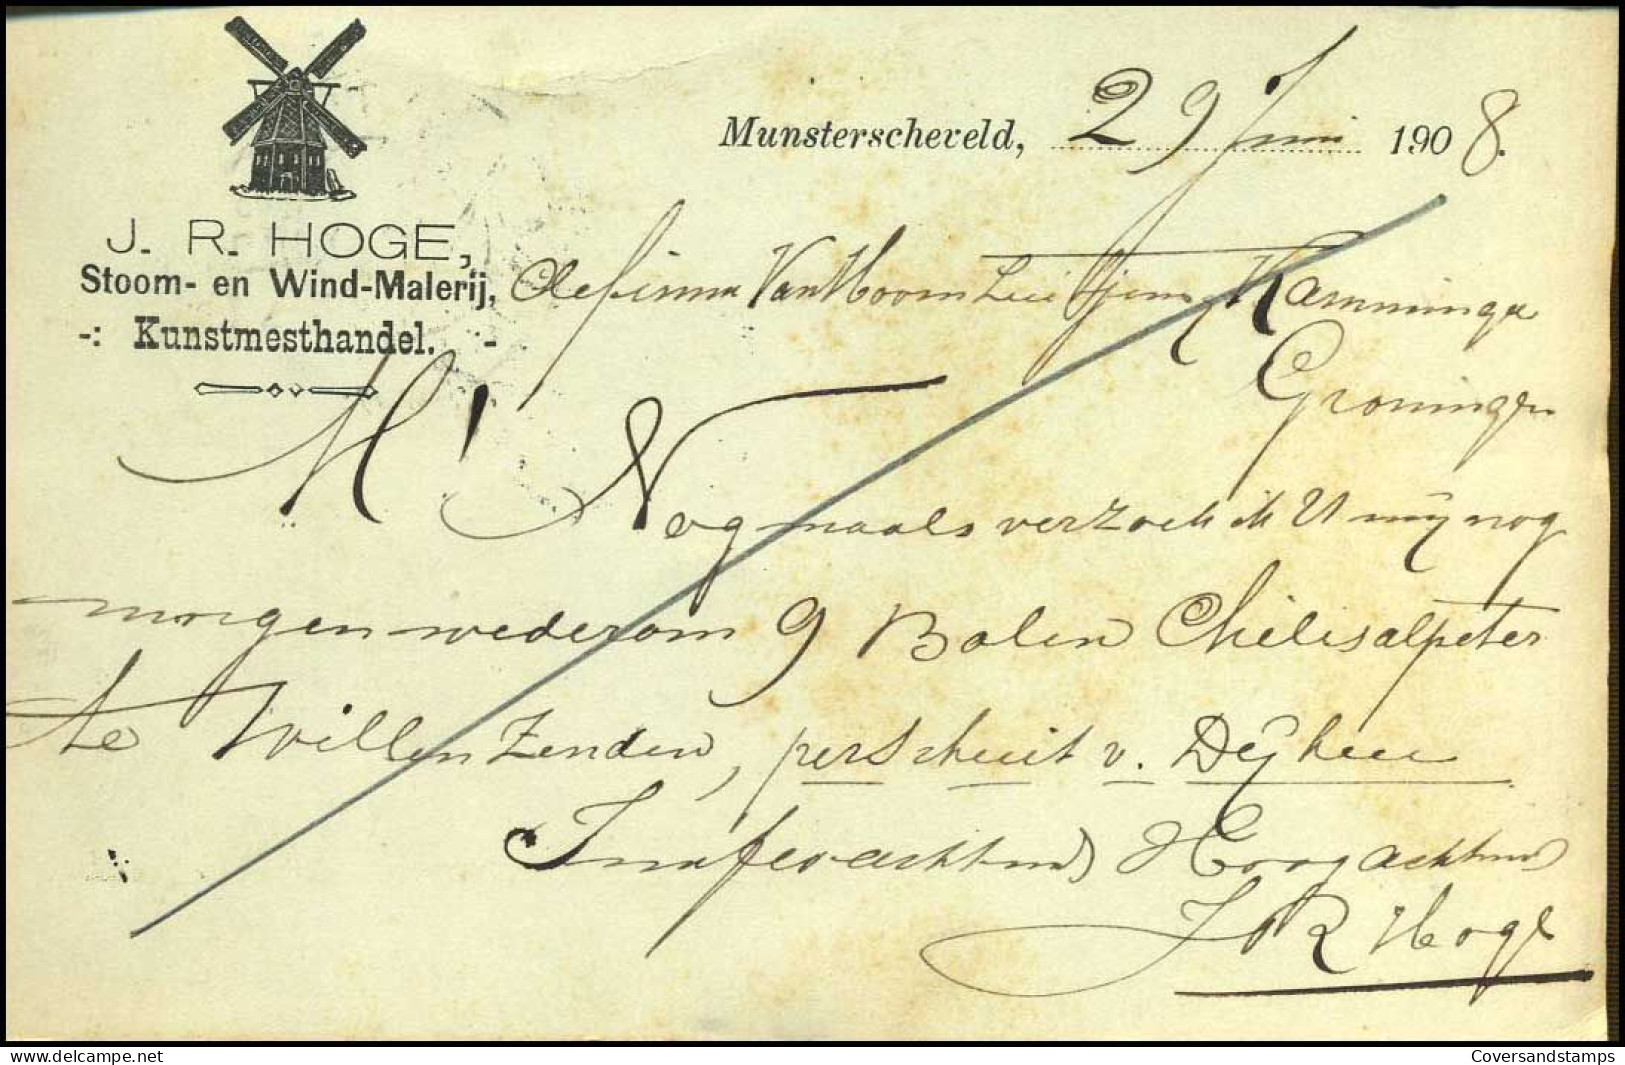 Munsterscheveld, 29 Juni 1908.
J. R. HOGE,
Stoom- en Wind-Malerij,
-: Kunstmesthandel. -
de firma Van Hoorn Luitjens Kamminga
Groningen
M!
Nogmaals verzoek ik U mij nog
morgen wederom 9 Balen Chilisalpeter
te Willen Zenden, per Schuit v. Dijken
Inmfevachtend Hoogachtend
J R Hoge
Coversandstamps